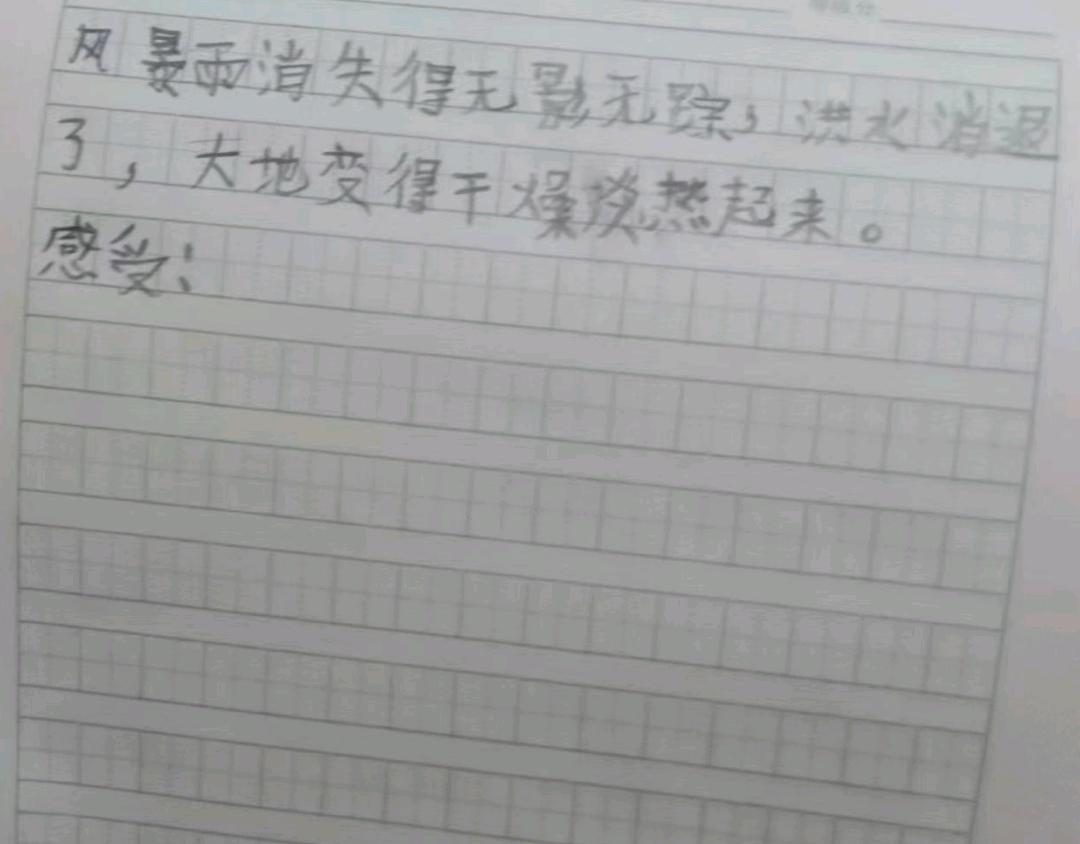 风暴雨消失得无影无踪，洪水消退
了，大地变得干燥焕热起来。
感受：